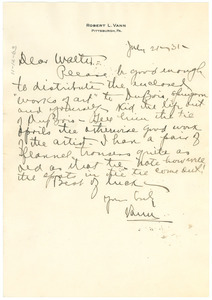 ROBERT L. VANN
PITTSBURGH, PA.
July 21 - 31 -
Dear Walter:-
Please be good enough
to distribute the enclosed
"works of art" to DuBois
and yourself. Kid the life out
of DuBois - tell him the tie
spoils the otherwise good work
of the artist. I have a pair of
flannel trousers quite as
as that tie. Note how
the spots in the tie come out!
Best of luck -
Yours truly
Vann